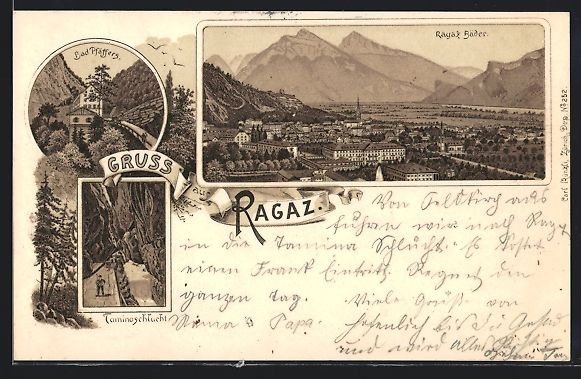 Bad Pfäffers.
Ragaz Bäder.
GRUSS
aus
RAGAZ.
Taminaschlucht
Carl Künzli, Zürich, Dép. No 252.
Von Feldkirch aus
fuhren wir nach Ragaz
in die Tamina Schlucht. Es kostet
einen Frank Eintritt. Regnet den
ganzen Tag. Viele Grüße von
Mama & Papa.
hofentlich bis Du Gesund
und wird alles